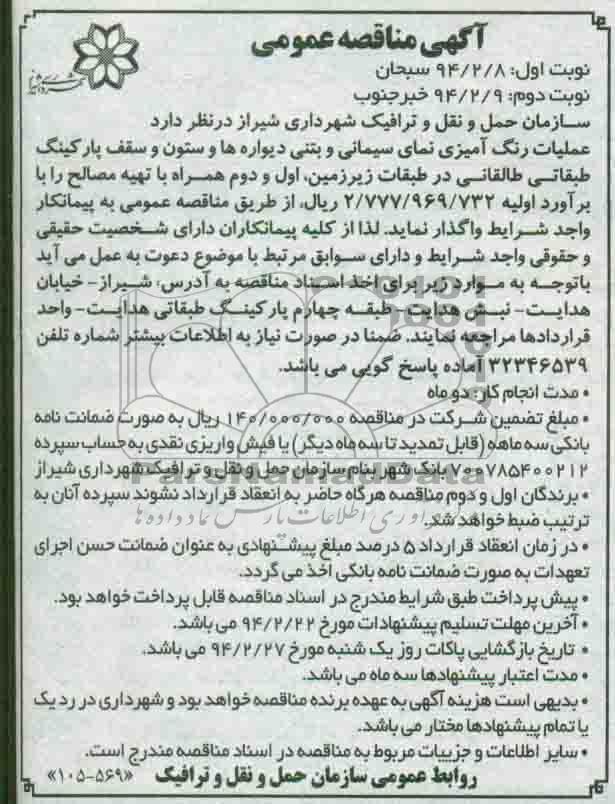 آگهی مناقصه عمومی
شهرداری شیراز
نوبت اول: ۹۴/۲/۸ سبحان
نوبت دوم: ۹۴/۲/۹ خبرجنوب
سازمان حمل و نقل و ترافیک شهرداری شیراز درنظر دارد
عملیات رنگ آمیزی نمای سیمانی و بتنی دیواره ها و ستون و سقف پارکینگ
طبقاتی طالقانی در طبقات زیرزمین، اول و دوم همراه با تهیه مصالح را با
برآورد اولیه ۲/۷۷۷/۹۶۹/۷۳۲ ریال، از طریق مناقصه عمومی به پیمانکار
واجد شرایط واگذار نماید. لذا از کلیه پیمانکاران دارای شخصیت حقیقی
و حقوقی واجد شرایط و دارای سوابق مرتبط با موضوع دعوت به عمل می آید
باتوجه به موارد زیر برای اخذ اسناد مناقصه به آدرس: شیراز- خیابان
هدایت- نبش هدایت- طبقه چهارم پارکینگ طبقاتی هدایت- واحد
قراردادها مراجعه نمایند. ضمنا در صورت نیاز به اطلاعات بیشتر شماره تلفن
۳۲۳۴۶۵۳۹ آماده پاسخ گویی می باشد.
• مدت انجام کار: دو ماه
• مبلغ تضمین شرکت در مناقصه ۱۴۰/۰۰۰/۰۰۰ ریال به صورت ضمانت نامه
بانکی سه ماهه (قابل تمدید تا سه ماه دیگر) یا فیش واریزی نقدی به حساب سپرده
۷۰۰۷۸۵۴۰۰۲۱۲ بانک شهر بنام سازمان حمل و نقل و ترافیک شهرداری شیراز
ParsNamadData
• برندگان اول و دوم مناقصه هرگاه حاضر به انعقاد قرارداد نشوند سپرده آنان به
ترتیب ضبط خواهد شد.
• در زمان انعقاد قرارداد ۵ درصد مبلغ پیشنهادی به عنوان ضمانت حسن اجرای
تعهدات به صورت ضمانت نامه بانکی اخذ می گردد.
• پیش پرداخت طبق شرایط مندرج در اسناد مناقصه قابل پرداخت خواهد بود.
• آخرین مهلت تسلیم پیشنهادات مورخ ۹۴/۲/۲۲ می باشد.
• تاریخ بازگشایی پاکات روز یک شنبه مورخ ۹۴/۲/۲۷ می باشد.
• مدت اعتبار پیشنهادها سه ماه می باشد.
• بدیهی است هزینه آگهی به عهده برنده مناقصه خواهد بود و شهرداری در رد یک
یا تمام پیشنهادها مختار می باشد.
• سایر اطلاعات و جزییات مربوط به مناقصه در اسناد مناقصه مندرج است.
روابط عمومی سازمان حمل و نقل و ترافیک «۱۰۵-۵۶۹»